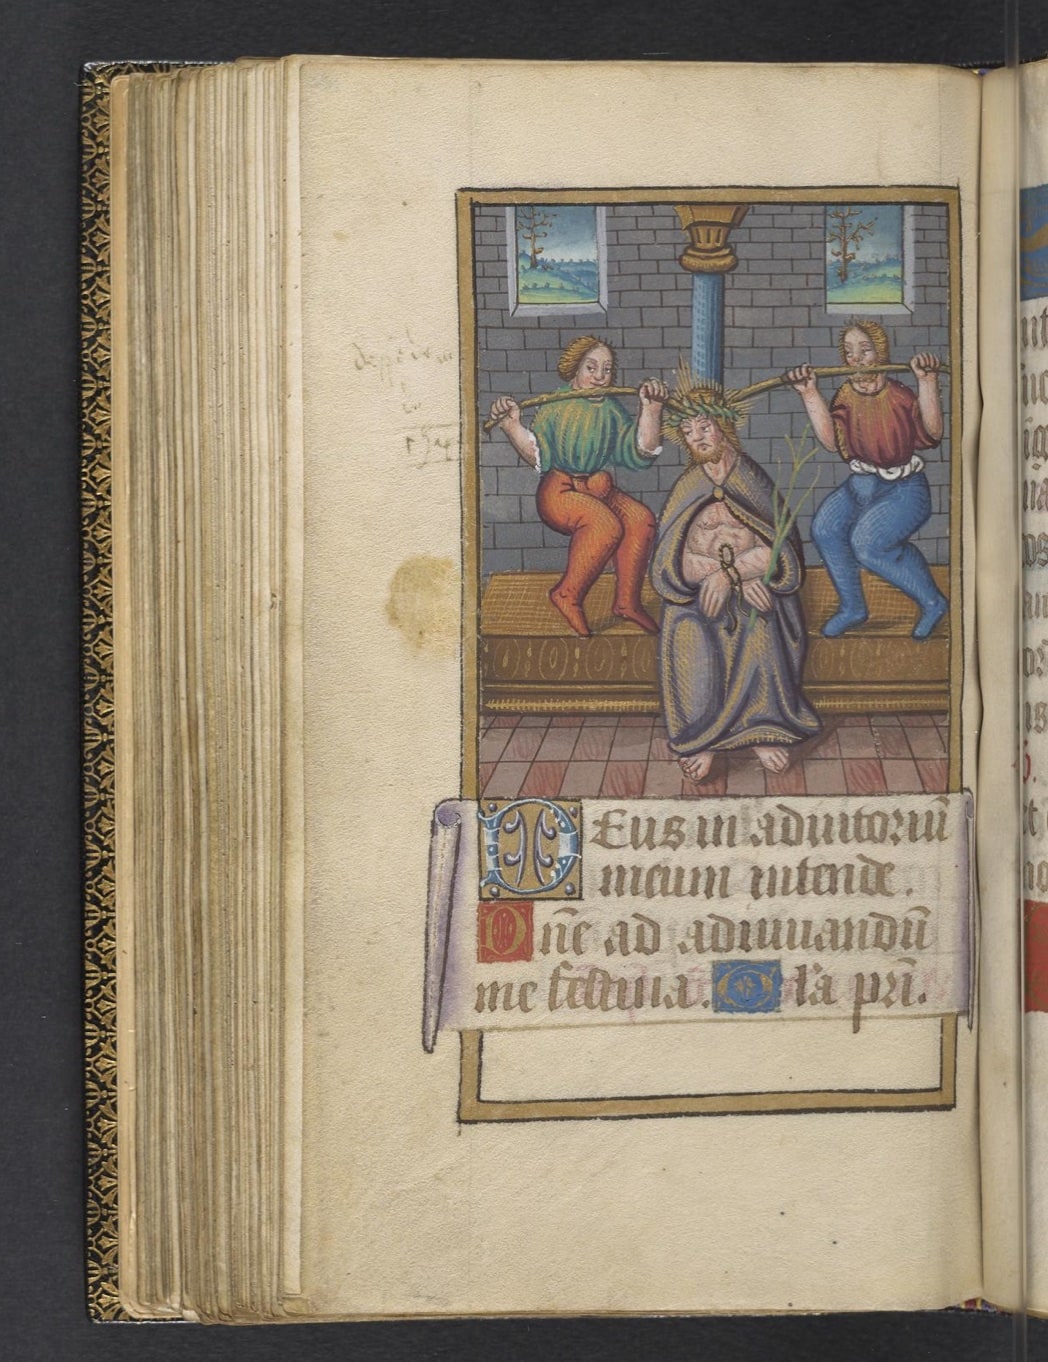 DEus in adiutoriū
meum intende.
Dn̄e ad adiuuandū
me festina. Gl'a pr̄i.